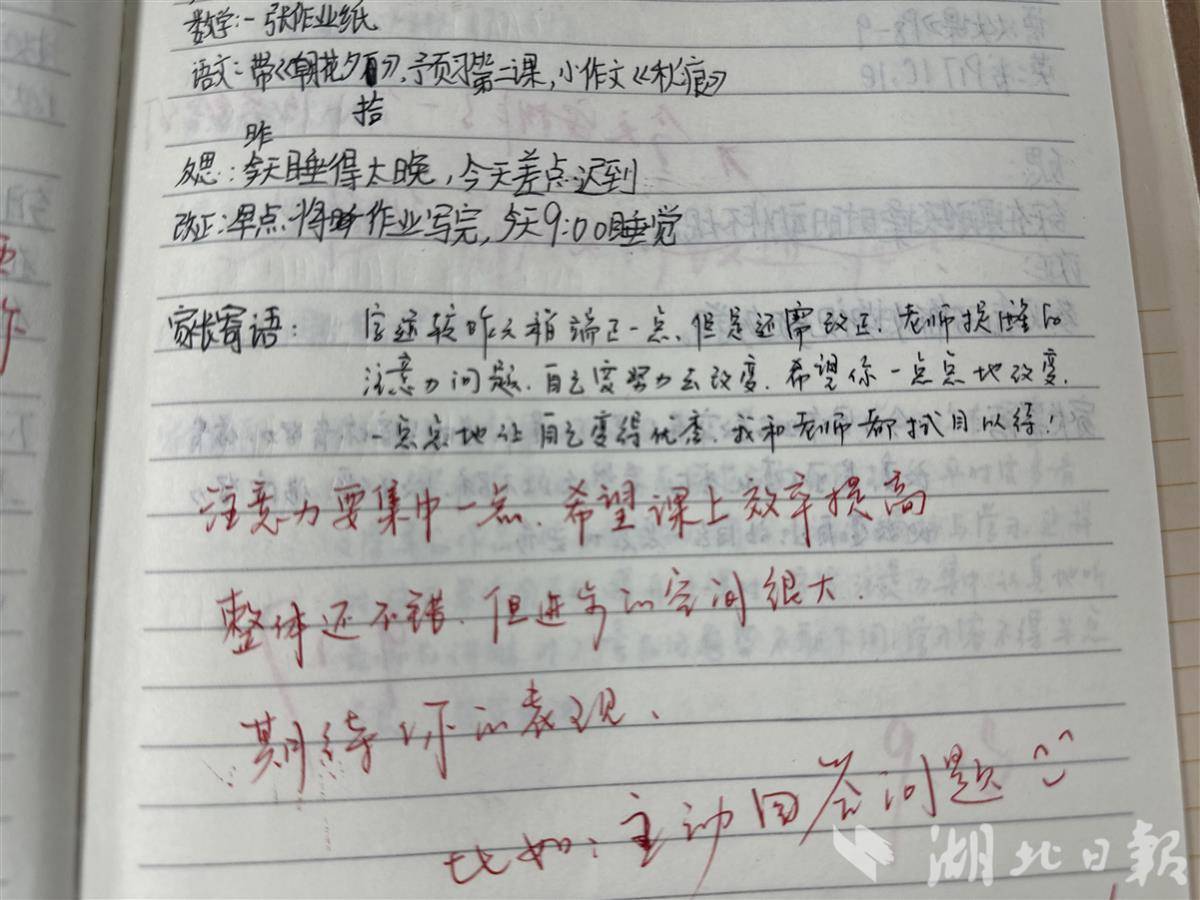 数学:一张作业纸
语文:带《朝花夕拾》,预习第二课,小作文《秋痕》
昨
反思:今天睡得太晚,今天差点迟到
改正:早点将作业写完,今天9:00睡觉
家长寄语: 字迹较昨天稍端正一点,但是还需改正.老师提醒的
注意力问题.自己要努力去改变.希望你一点点地改变.
一点点地让自己变得优秀 我和老师都拭目以待!
注意力要集中一点.希望课上效率提高
整体还不错.但进步的空间很大.
期待你的表现.
比如:主动回答问题
湖北日报